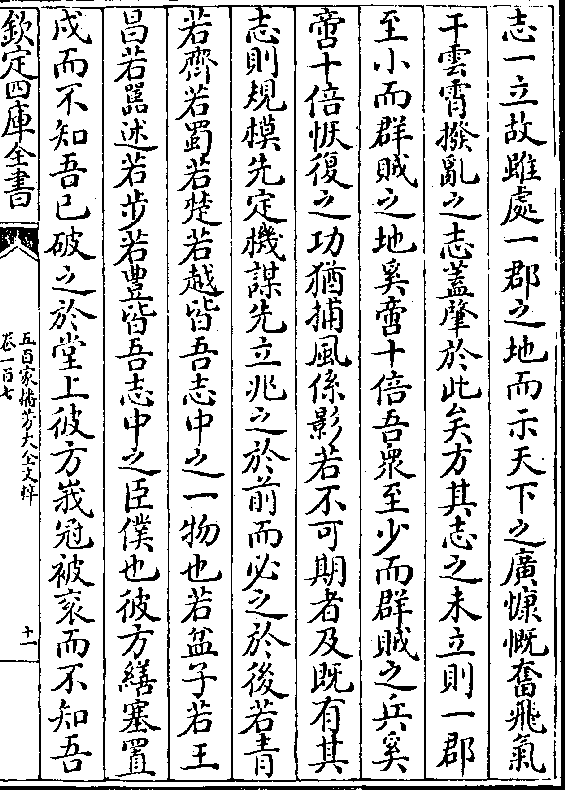 志一立故雖處一郡之地而示天下之廣慷慨奮飛氣
干雲霄撥亂之志蓋肇於此矣方其志之未立則一郡
至小而群賊之地奚啻十倍吾衆至少而群賊之兵奚
啻十倍恢復之功猶捕風係影若不可期者及既有其
志則規模先定機謀先立兆之於前而必之於後若青
若齊若蜀若楚若越皆吾志中之一物也若盆子若王
昌若囂述若步若豐皆吾志中之臣僕也彼方繕塞置
戍而不知吾已破之於堂上彼方峩冠被衮而不知吾
欽定四庫全書
五百家播芳大全文粹
卷一百七
十一